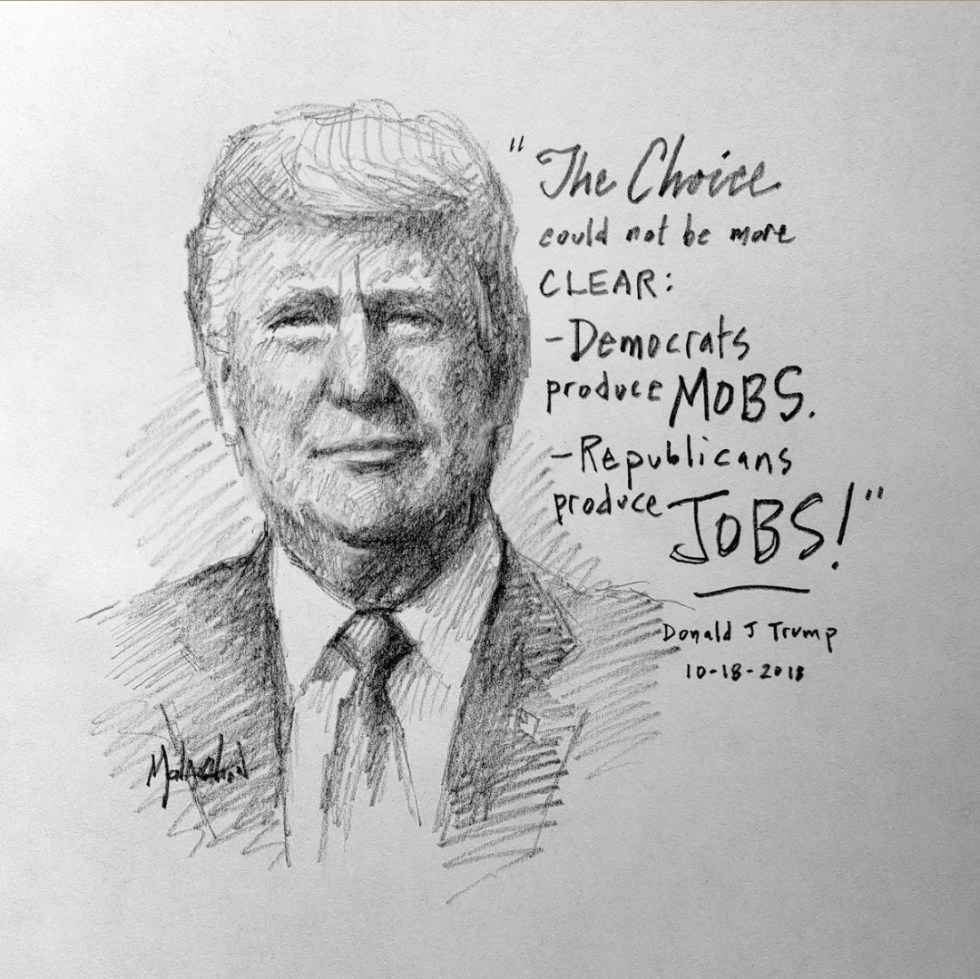 "The Choice
could not be more
CLEAR:
-Democrats
produce MOBS.
-Republicans
produce JOBS!"
Donald J Trump
10-18-2018